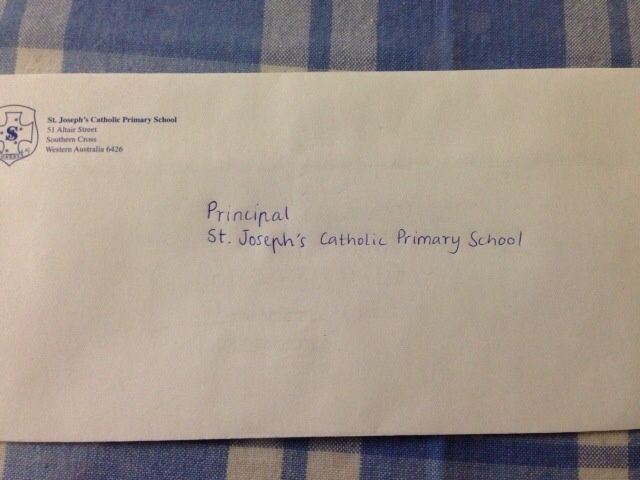 St. Joseph's Catholic Primary School
51 Altair Street
Southern Cross
Western Australia 6426
Principal
St. Joseph's Catholic Primary School